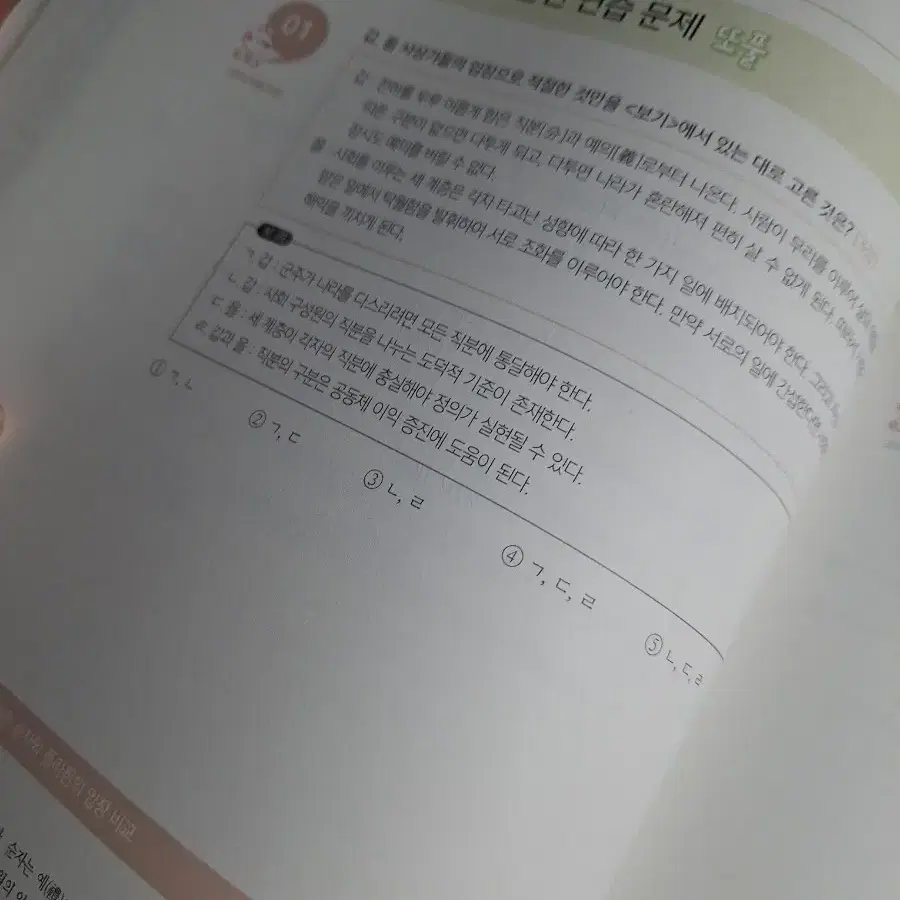 연습 문제 또 풀
01
갑, 을 사상가들의 입장으로 적절한 것만을 <보기>에서 있는 대로 고른 것은?
갑 : 천하를 두루 이롭게 함은 직분[分]과 예의[義]로부터 나온다. 사람이 무리를 이루어
구분이 없으면 다투게 되고, 다투면 나라가 혼란해져 편히 살 수 없게 된다.
잠시도 예의를 버릴 수 없다.
을 : 사회를 이루는 세 계층은 각자 타고난 성향에 따라 한 가지 일에 배치되어야 한다.
맡은 일에서 탁월함을 발휘하여 서로 조화를 이루어야 한다. 만약 서로의 일에 간섭한다면
해악을 끼치게 된다.
보기
ㄱ. 갑 : 군주가 나라를 다스리려면 모든 직분에 통달해야 한다.
ㄴ. 갑 : 사회 구성원의 직분을 나누는 도덕적 기준이 존재한다.
ㄷ. 을 : 세 계층이 각자의 직분에 충실해야 정의가 실현될 수 있다.
ㄹ. 갑과 을 : 직분의 구분은 공동체 이익 증진에 도움이 된다.
① ㄱ, ㄴ
② ㄱ, ㄷ
③ ㄴ, ㄹ
④ ㄱ, ㄷ, ㄹ
⑤ ㄴ, ㄷ, ㄹ
순자와 플라톤의 입장 비교
순자는 예(禮)